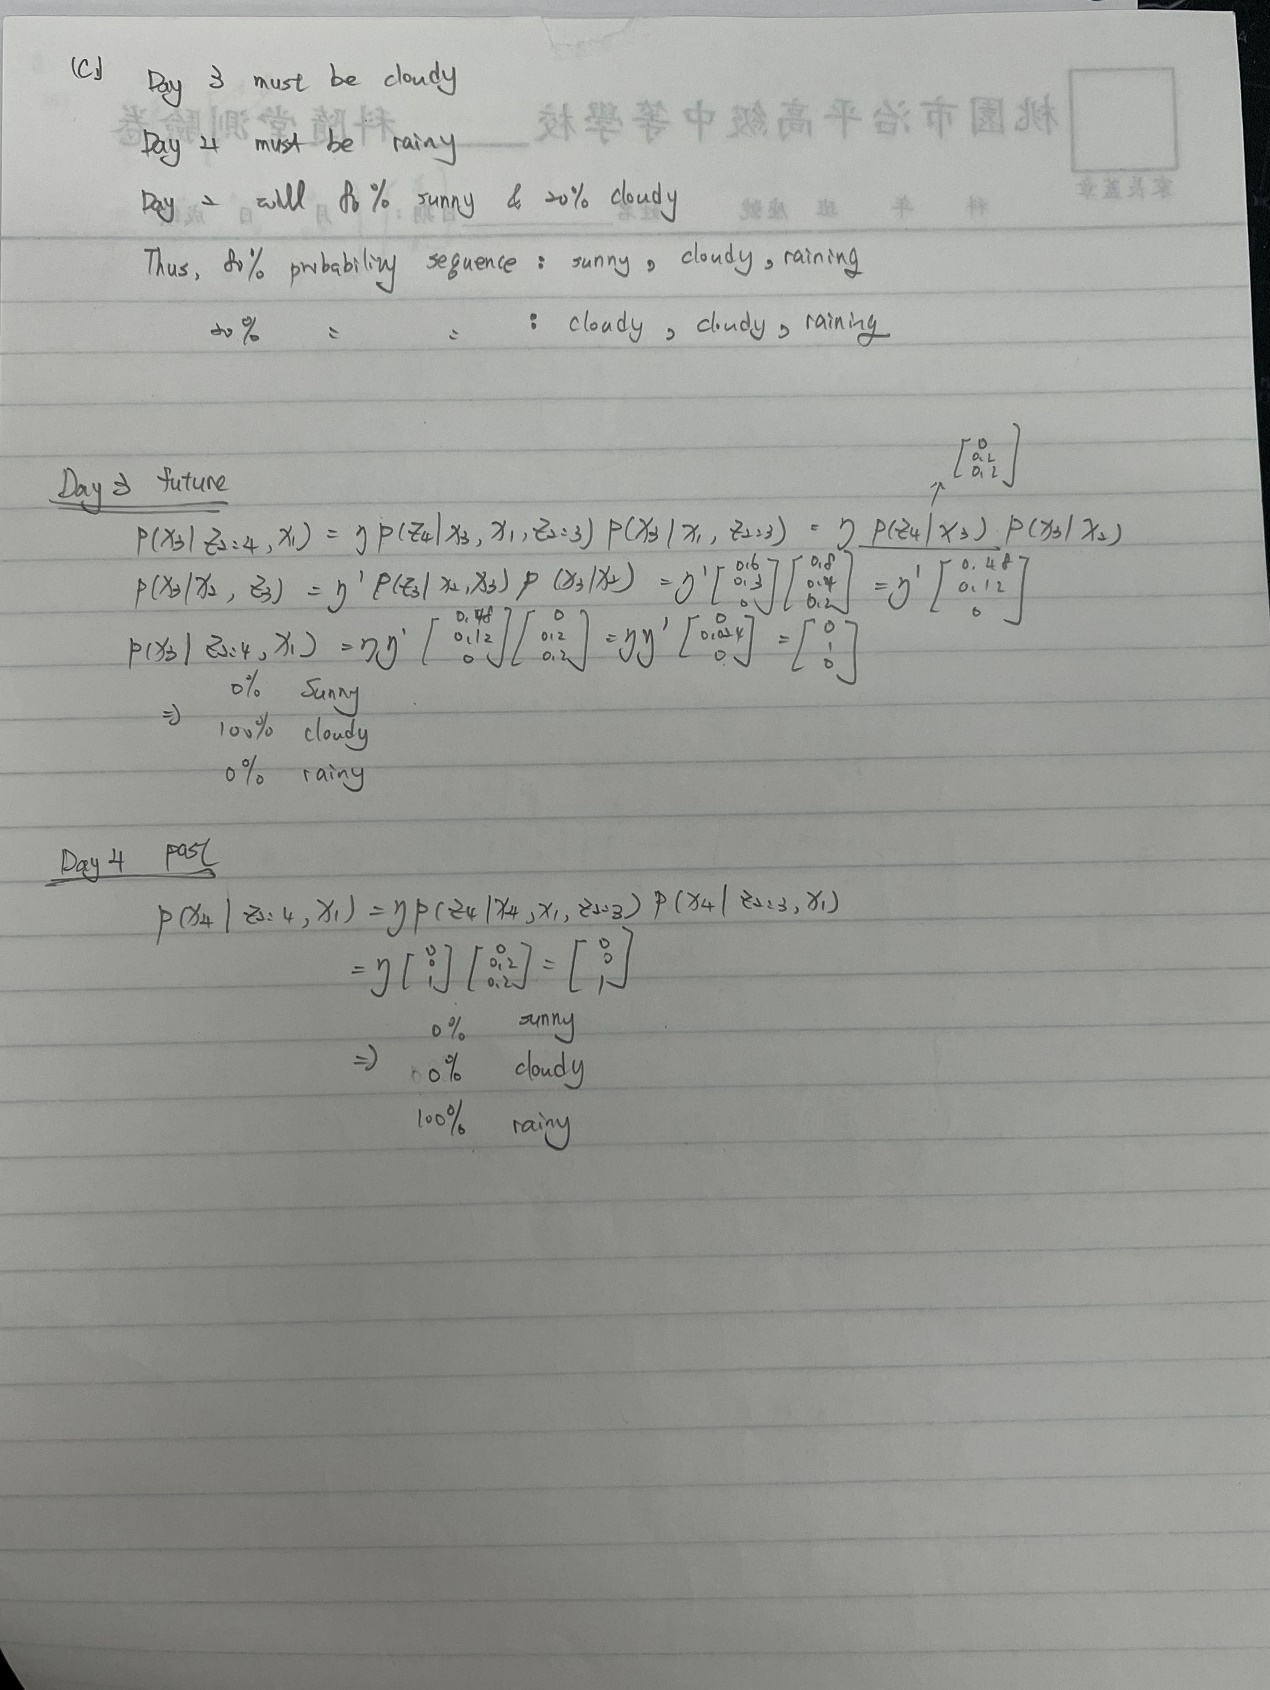 (C)
Day 3 must be cloudy
Day 4 must be rainy
Day 2 will 80% sunny & 20% cloudy
Thus, 80% probability sequence : sunny, cloudy, raining
20% = = : cloudy, cloudy, raining
桃園市治平高級中等學校 科隨堂測驗卷
家長蓋章
科 年 班 座號 姓名 日期: 月 日 成績
Day 3 future
[0 0.2 0.2]
P(x₃|z₂:₄, x₁) = η P(z₄|x₃, x₁, z₂:₃) P(x₃|x₁, z₂:₃) = η P(z₄|x₃) P(x₃|x₂)
P(x₃|x₂, z₃) = η' P(z₃|x₂, x₃) P(x₃|x₂) = η' [0.6 0.3 0] [0.8 0.4 0.2] = η' [0.48 0.12 0]
P(x₃|z₂:₄, x₁) = ηη' [0.48 0.12 0] [0 0.2 0.2] = ηη' [0 0.024 0] = [0 1 0]
0% sunny
⇒ 100% cloudy
0% rainy
Day 4 past
P(x₄|z₂:₄, x₁) = η P(z₄|x₄, x₁, z₂:₃) P(x₄|z₂:₃, x₁)
= η [0 0 1] [0 0.2 0.2] = [0 0 1]
0% sunny
⇒ 0% cloudy
100% rainy